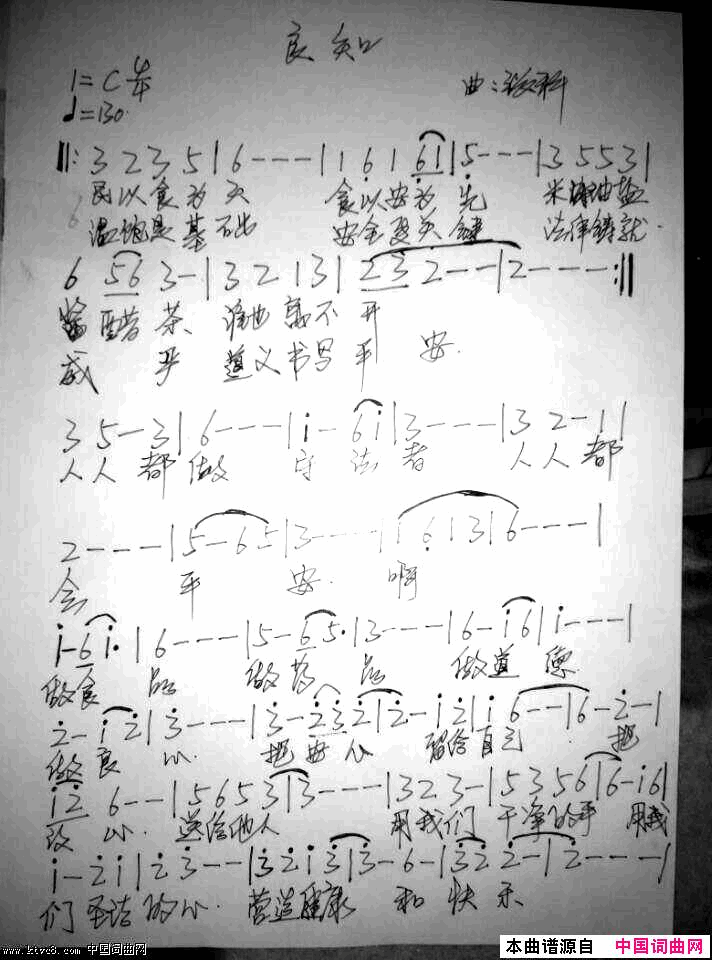 良知
1=C 4/4
♩=130
曲:
‖: 3 2 3 5 | 6 - - - | 1 6 1 6 1 | 5 - - - | 3 5 5 3 |
民以食为天 食以安为先 米油盐
温饱是基础 安全更关键 法律铸就
6 5 6 3 - | 3 2 1 3 | 2 3 2 - - | 2 - - - :‖
酱醋茶 谁也离不开
威严 道义书写平安.
3 5 - 3 | 6 - - - | i - 6 i | 3 - - - | 3 2 - 1 |
人人都做 守法者 人人都
2 - - - | 5 - 6 5 | 3 - - - | 1 6 1 3 | 6 - - - |
会 平安. 啊
i - 6 i · | 6 - - - | 5 - 6 5 · | 3 - - - | 6 - i 6 | i - - - |
做食品 做药品 做道德
2 - i 2 | 3 - - - | 3 - 2 3 2 | 2 - i 2 | i 6 - - | 6 - 2 - |
做良心. 把安心 留给自己. 把
i 2 6 - - | 5 6 5 3 | 3 - - - | 3 2 3 - | 5 3 5 6 | 6 - i 6 |
放心. 送给他人 用我们 干净的手 用我
i - 2 i | 2 3 - - | 3 2 i 3 | 3 - 6 - | 3 2 2 - | 2 - - - |
们圣洁的心. 营造健康 和快乐
www.ktvc8.com 中国词曲网
本曲谱源自 中国词曲网